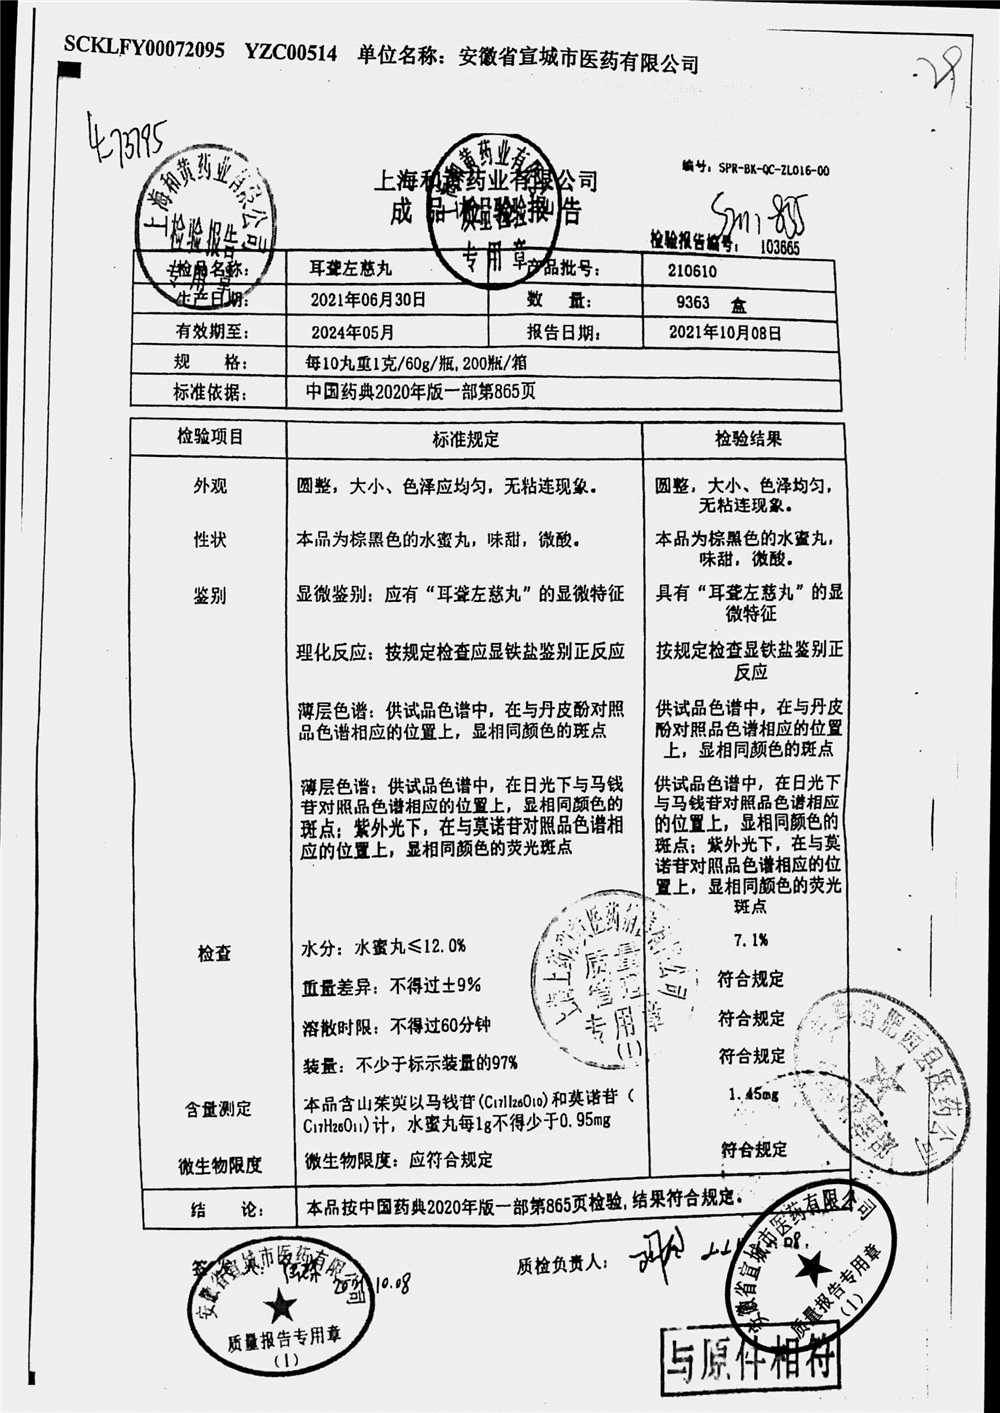 SCKLFY00072095 YZC00514 单位名称：安徽省宣城市医药有限公司
编号：SPR-BK-QC-ZL016-00
上海和黄药业有限公司
成品检验报告
上海和黄药业有限公司
检验报告
专用章
专用章
检验报告编号：103665
检品名称： 耳聋左慈丸 产品批号： 210610
生产日期： 2021年06月30日 数 量： 9363 盒
有效期至： 2024年05月 报告日期： 2021年10月08日
规 格： 每10丸重1克/60g/瓶,200瓶/箱
标准依据： 中国药典2020年版一部第865页
检验项目 标准规定 检验结果
外观 圆整，大小、色泽应均匀，无粘连现象。 圆整，大小、色泽均匀，
无粘连现象。
性状 本品为棕黑色的水蜜丸，味甜，微酸。 本品为棕黑色的水蜜丸，
味甜，微酸。
鉴别 显微鉴别：应有“耳聋左慈丸”的显微特征 具有“耳聋左慈丸”的显
微特征
理化反应：按规定检查应显铁盐鉴别正反应 按规定检查显铁盐鉴别正
反应
薄层色谱：供试品色谱中，在与丹皮酚对照
品色谱相应的位置上，显相同颜色的斑点
供试品色谱中，在与丹皮
酚对照品色谱相应的位置
上，显相同颜色的斑点
薄层色谱：供试品色谱中，在日光下与马钱
苷对照品色谱相应的位置上，显相同颜色的
斑点；紫外光下，在与莫诺苷对照品色谱相
应的位置上，显相同颜色的荧光斑点
供试品色谱中，在日光下
与马钱苷对照品色谱相应
的位置上，显相同颜色的
斑点；紫外光下，在与莫
诺苷对照品色谱相应的位
置上，显相同颜色的荧光
斑点
检查 水分：水蜜丸≤12.0% 7.1%
重量差异：不得过±9% 符合规定
溶散时限：不得过60分钟 符合规定
装量：不少于标示装量的97% 符合规定
含量测定 本品含山茱萸以马钱苷(C17H26O10)和莫诺苷(
C17H26O11)计，水蜜丸每1g不得少于0.95mg
1.45mg
微生物限度 微生物限度：应符合规定 符合规定
结 论： 本品按中国药典2020年版一部第865页检验,结果符合规定。
质量
管理
专用章
(1)
肥西县医药公司
质检负责人：
2021.10.08
安徽省宣城市医药有限公司
质量报告专用章
(1)
安徽省宣城市医药有限公司
质量报告专用章
(1)
与原件相符